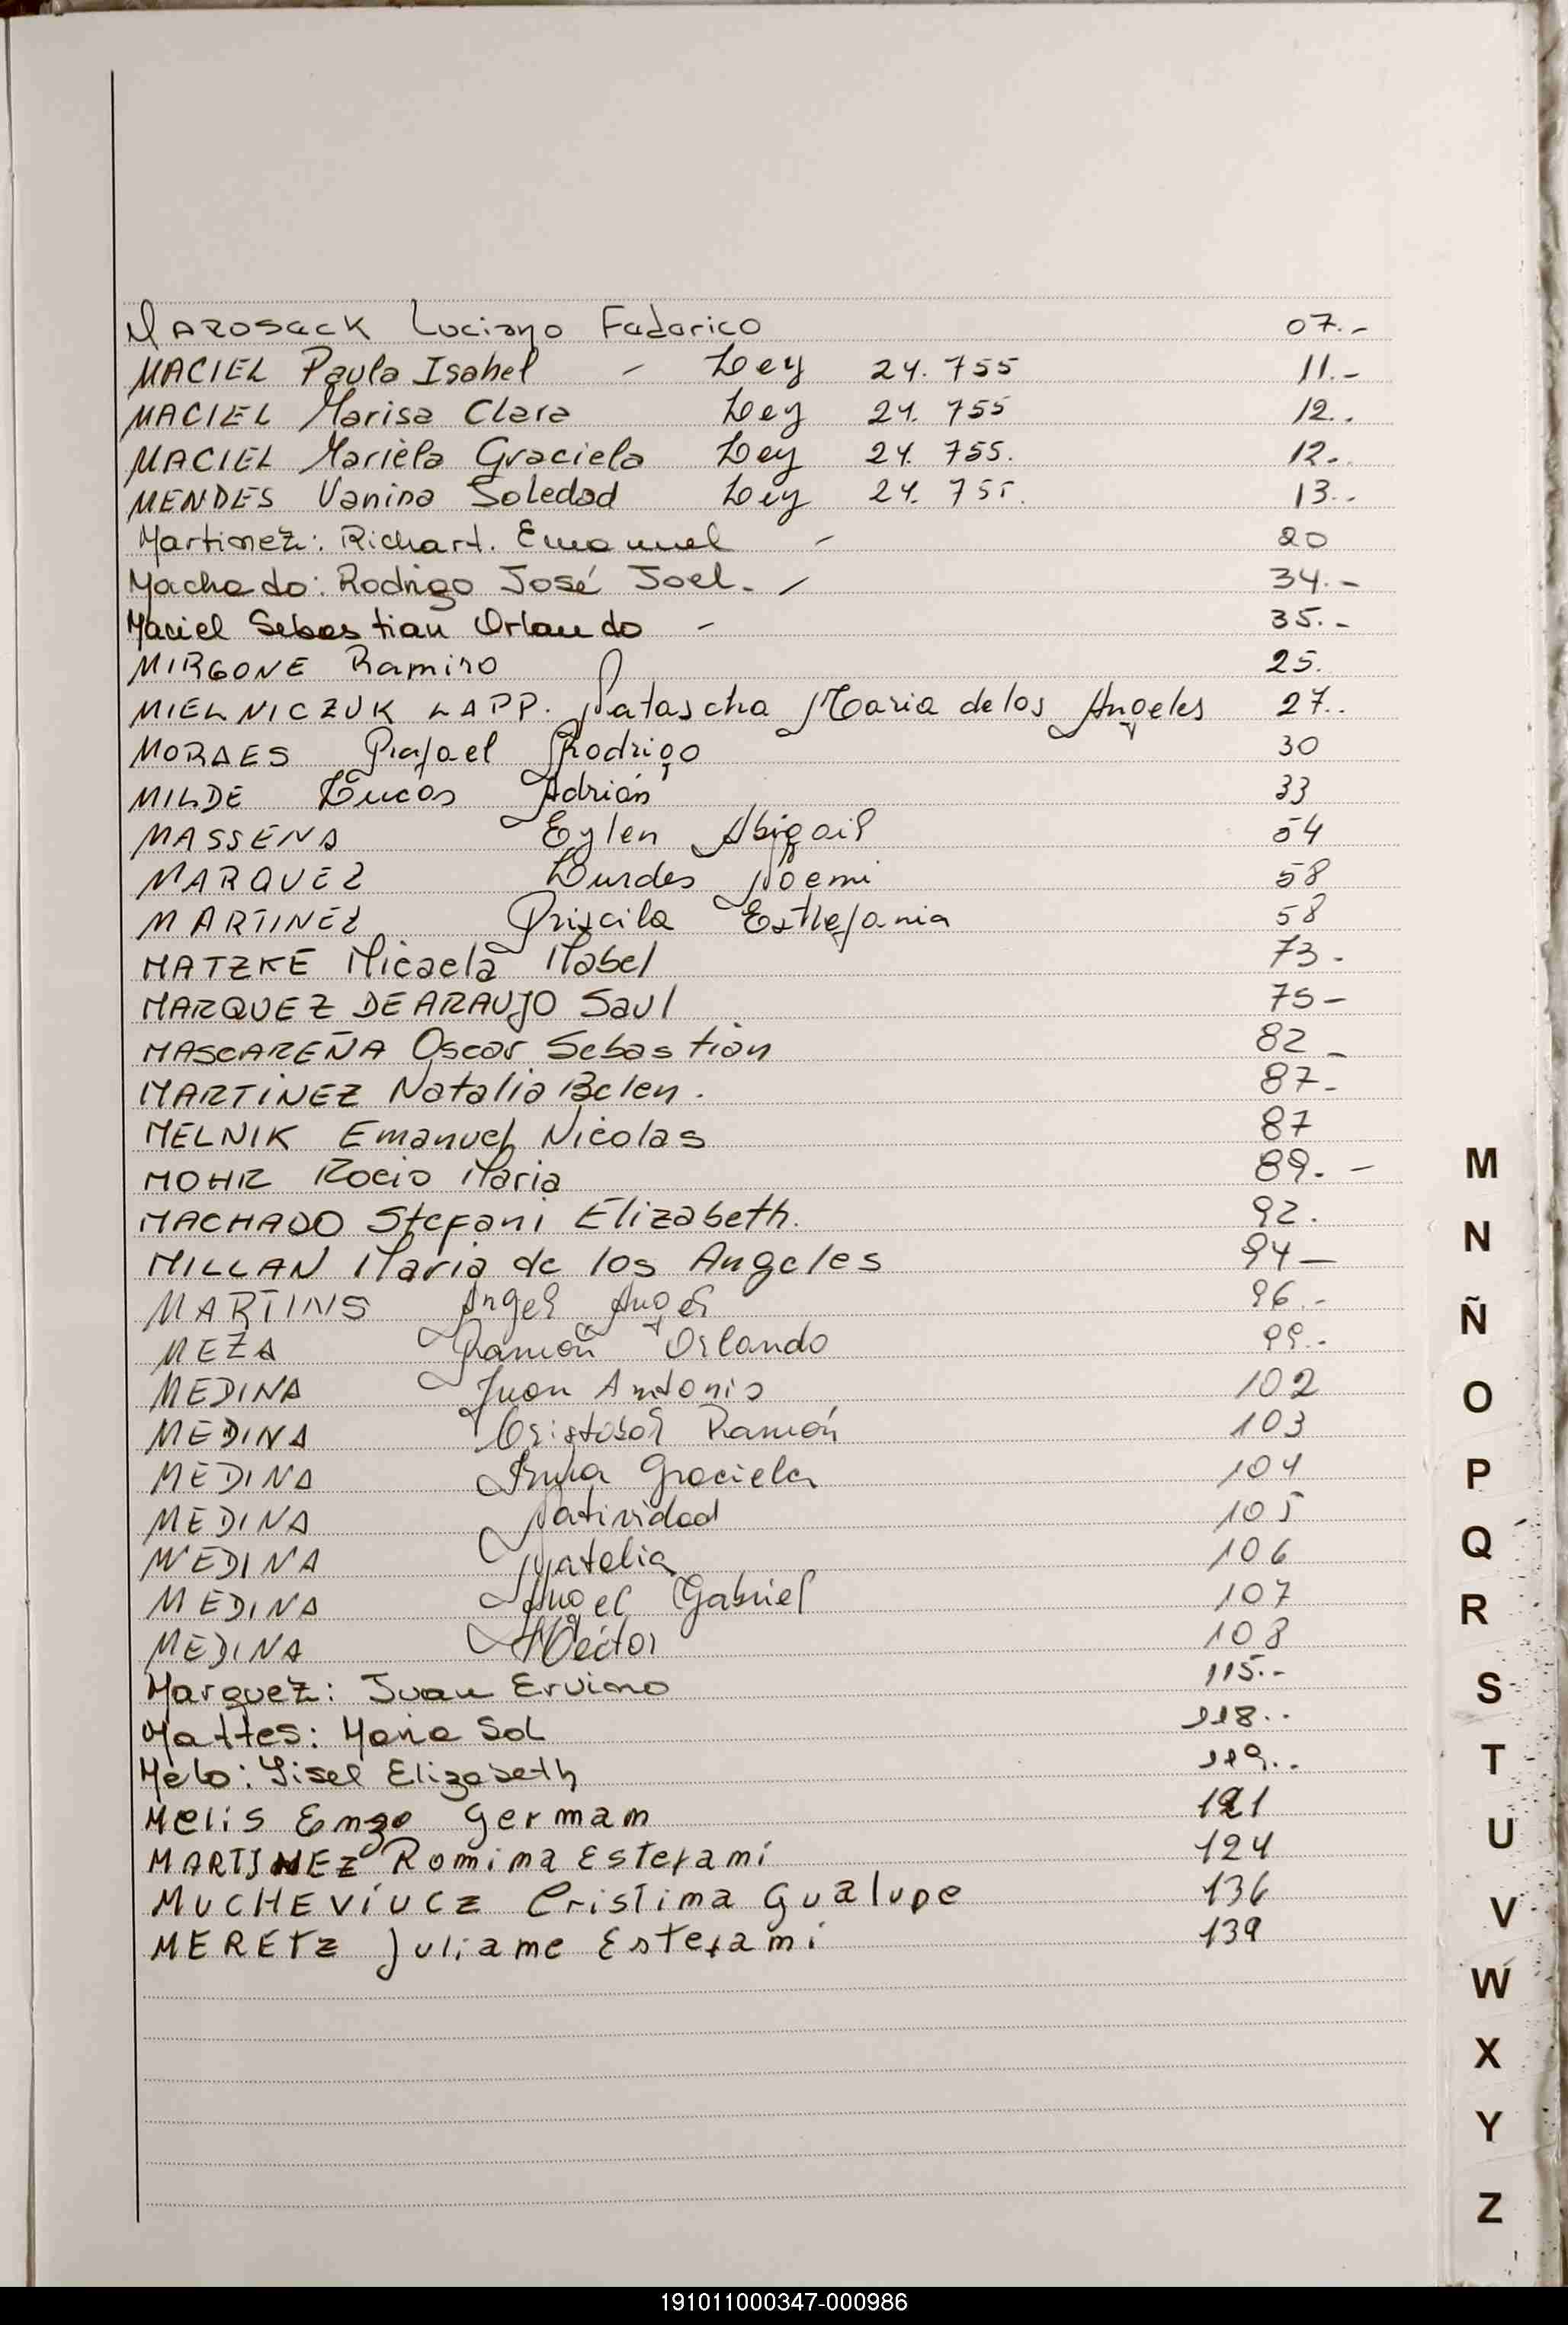 MAROSACK Luciano Federico 07.-
MACIEL Paula Isabel - Ley 24.755 11.-
MACIEL Marisa Clara Ley 24.755 12..
MACIEL Mariela Graciela Ley 24.755. 12..
MENDES Vanina Soledad Ley 24.755. 13..
Martinez: Richart. Emanuel - 20
Machado: Rodrigo José Joel. - 34.-
Maciel Sebastian Orlando - 35.-
MIRGONE Ramiro 25.
MIELNICZUK LAPP. Natascha Maria de los Angeles 27..
MORAES Rafael Rodrigo 30
MILDE Lucas Adrián 33
MASSENA Eylen Abigail 54
MARQUEZ Lurdes Noemi 58
MARTINEZ Priscila Esthefania 58
MATZKE Micaela Mabel 73.
MARQUEZ DE ARAUJO Saul 75-
MASCAREÑA Oscar Sebastián 82-
MARTINEZ Natalia Belen. 87-
MELNIK Emanuel Nicolas 87
MOHR Rocio Maria 89.-
MACHADO Stefani Elizabeth. 92.
MILLAN Maria de los Angeles 94-
MARTINS Angel Angel 96.-
MEZA Ramón Orlando 99.-
MEDINA Juan Antonio 102
MEDINA Cristobal Ramón 103
MEDINA Graciela 104
MEDINA Natividad 105
MEDINA Natalia 106
MEDINA Angel Gabriel 107
MEDINA Héctor 108
Marquez: Juan Ervino 115.-
Mattes: Maria Sol 118..
Melo: Gisel Elizabeth 119..
Melis Enzo German 121
MARTINEZ Romina Estefani 124
MUCHEVIUCZ Cristina Gualupe 136
MERETZ Juliane Estefani 139
M
N
Ñ
O
P
Q
R
S
T
U
V
W
X
Y
Z
191011000347-000986